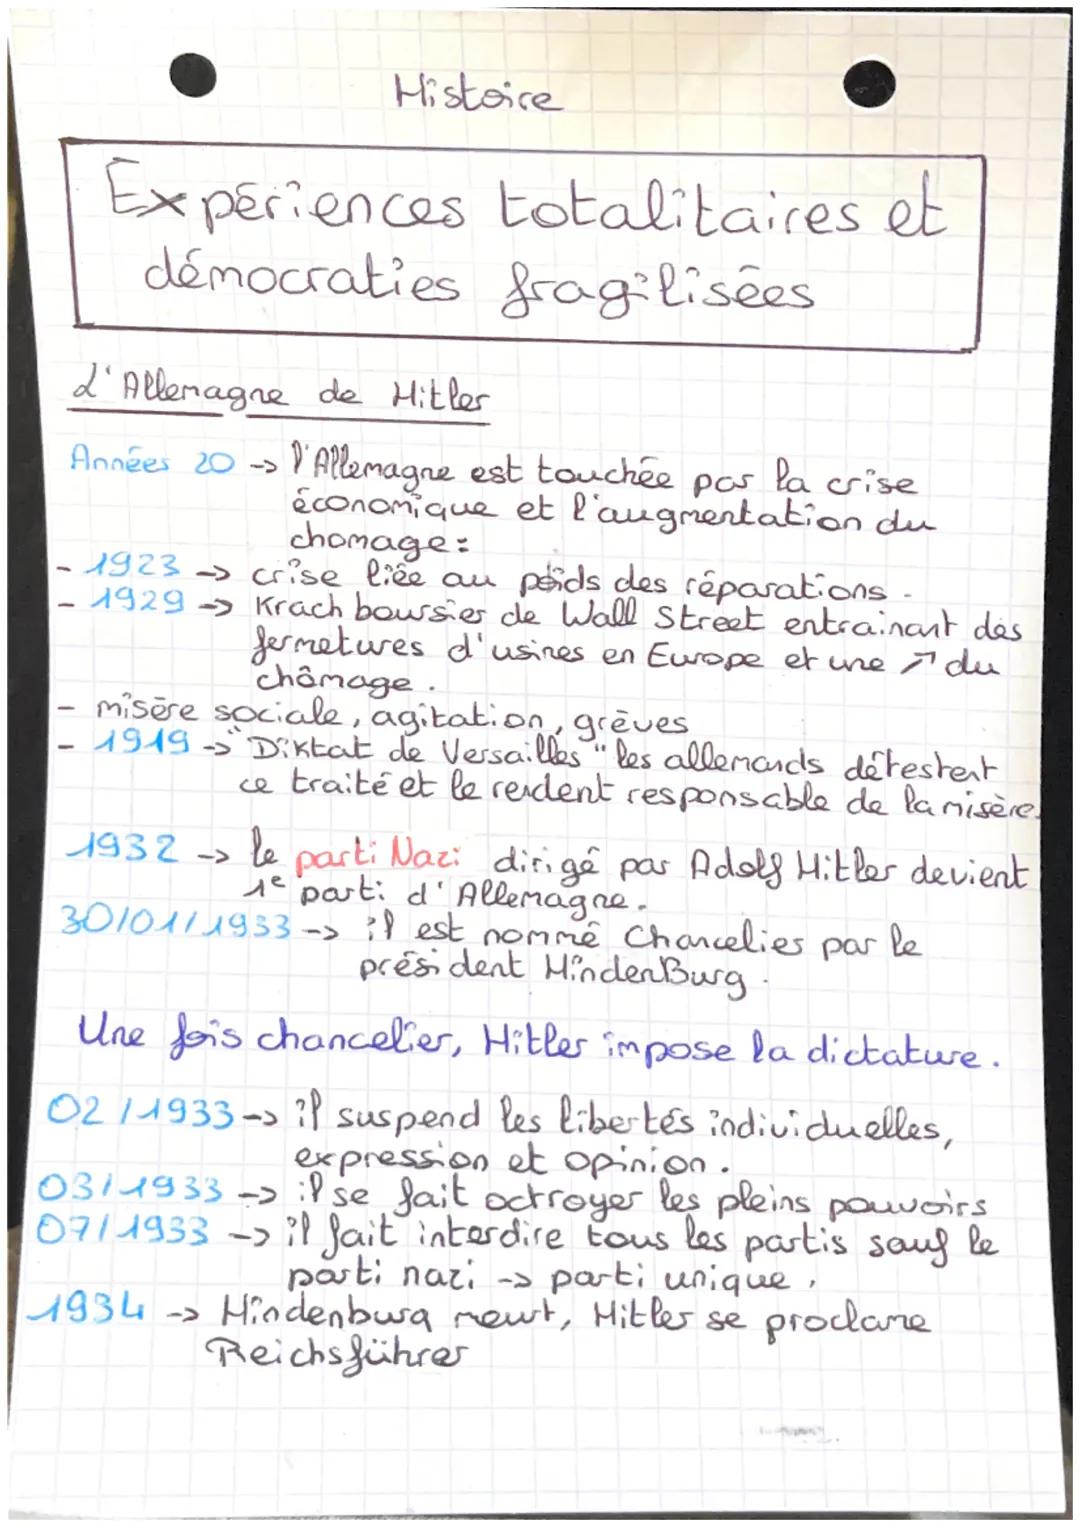 Histoire
Expériences totalitaires et
démocraties fragilisées
L'Allemagne de Hitler
Années 20 -> l'Allemagne est touchée par la crise
économique et l'augmentation du
chomage :
- 1923 -> crise liée au poids des réparations.
- 1929 -> Krach boursier de Wall Street entrainant des
fermetures d'usines en Europe et une ↗ du
chômage.
- misère sociale, agitation, grèves
- 1919 -> "Diktat de Versailles" les allemands détestent
ce traité et le rendent responsable de la misère.
1932 -> le parti Nazi dirigé par Adolf Hitler devient
1e parti d'Allemagne.
30/01/1933 -> il est nommé Chancelier par le
président HindenBurg.
Une fois chancelier, Hitler impose la dictature.
02/1933 -> il suspend les libertés individuelles,
expression et opinion.
03/1933 -> il se fait octroyer les pleins pouvoirs
07/1933 -> il fait interdire tous les partis sauf le
parti nazi -> parti unique.
1934 -> Hindenburg meurt, Hitler se proclame
Reichsführer